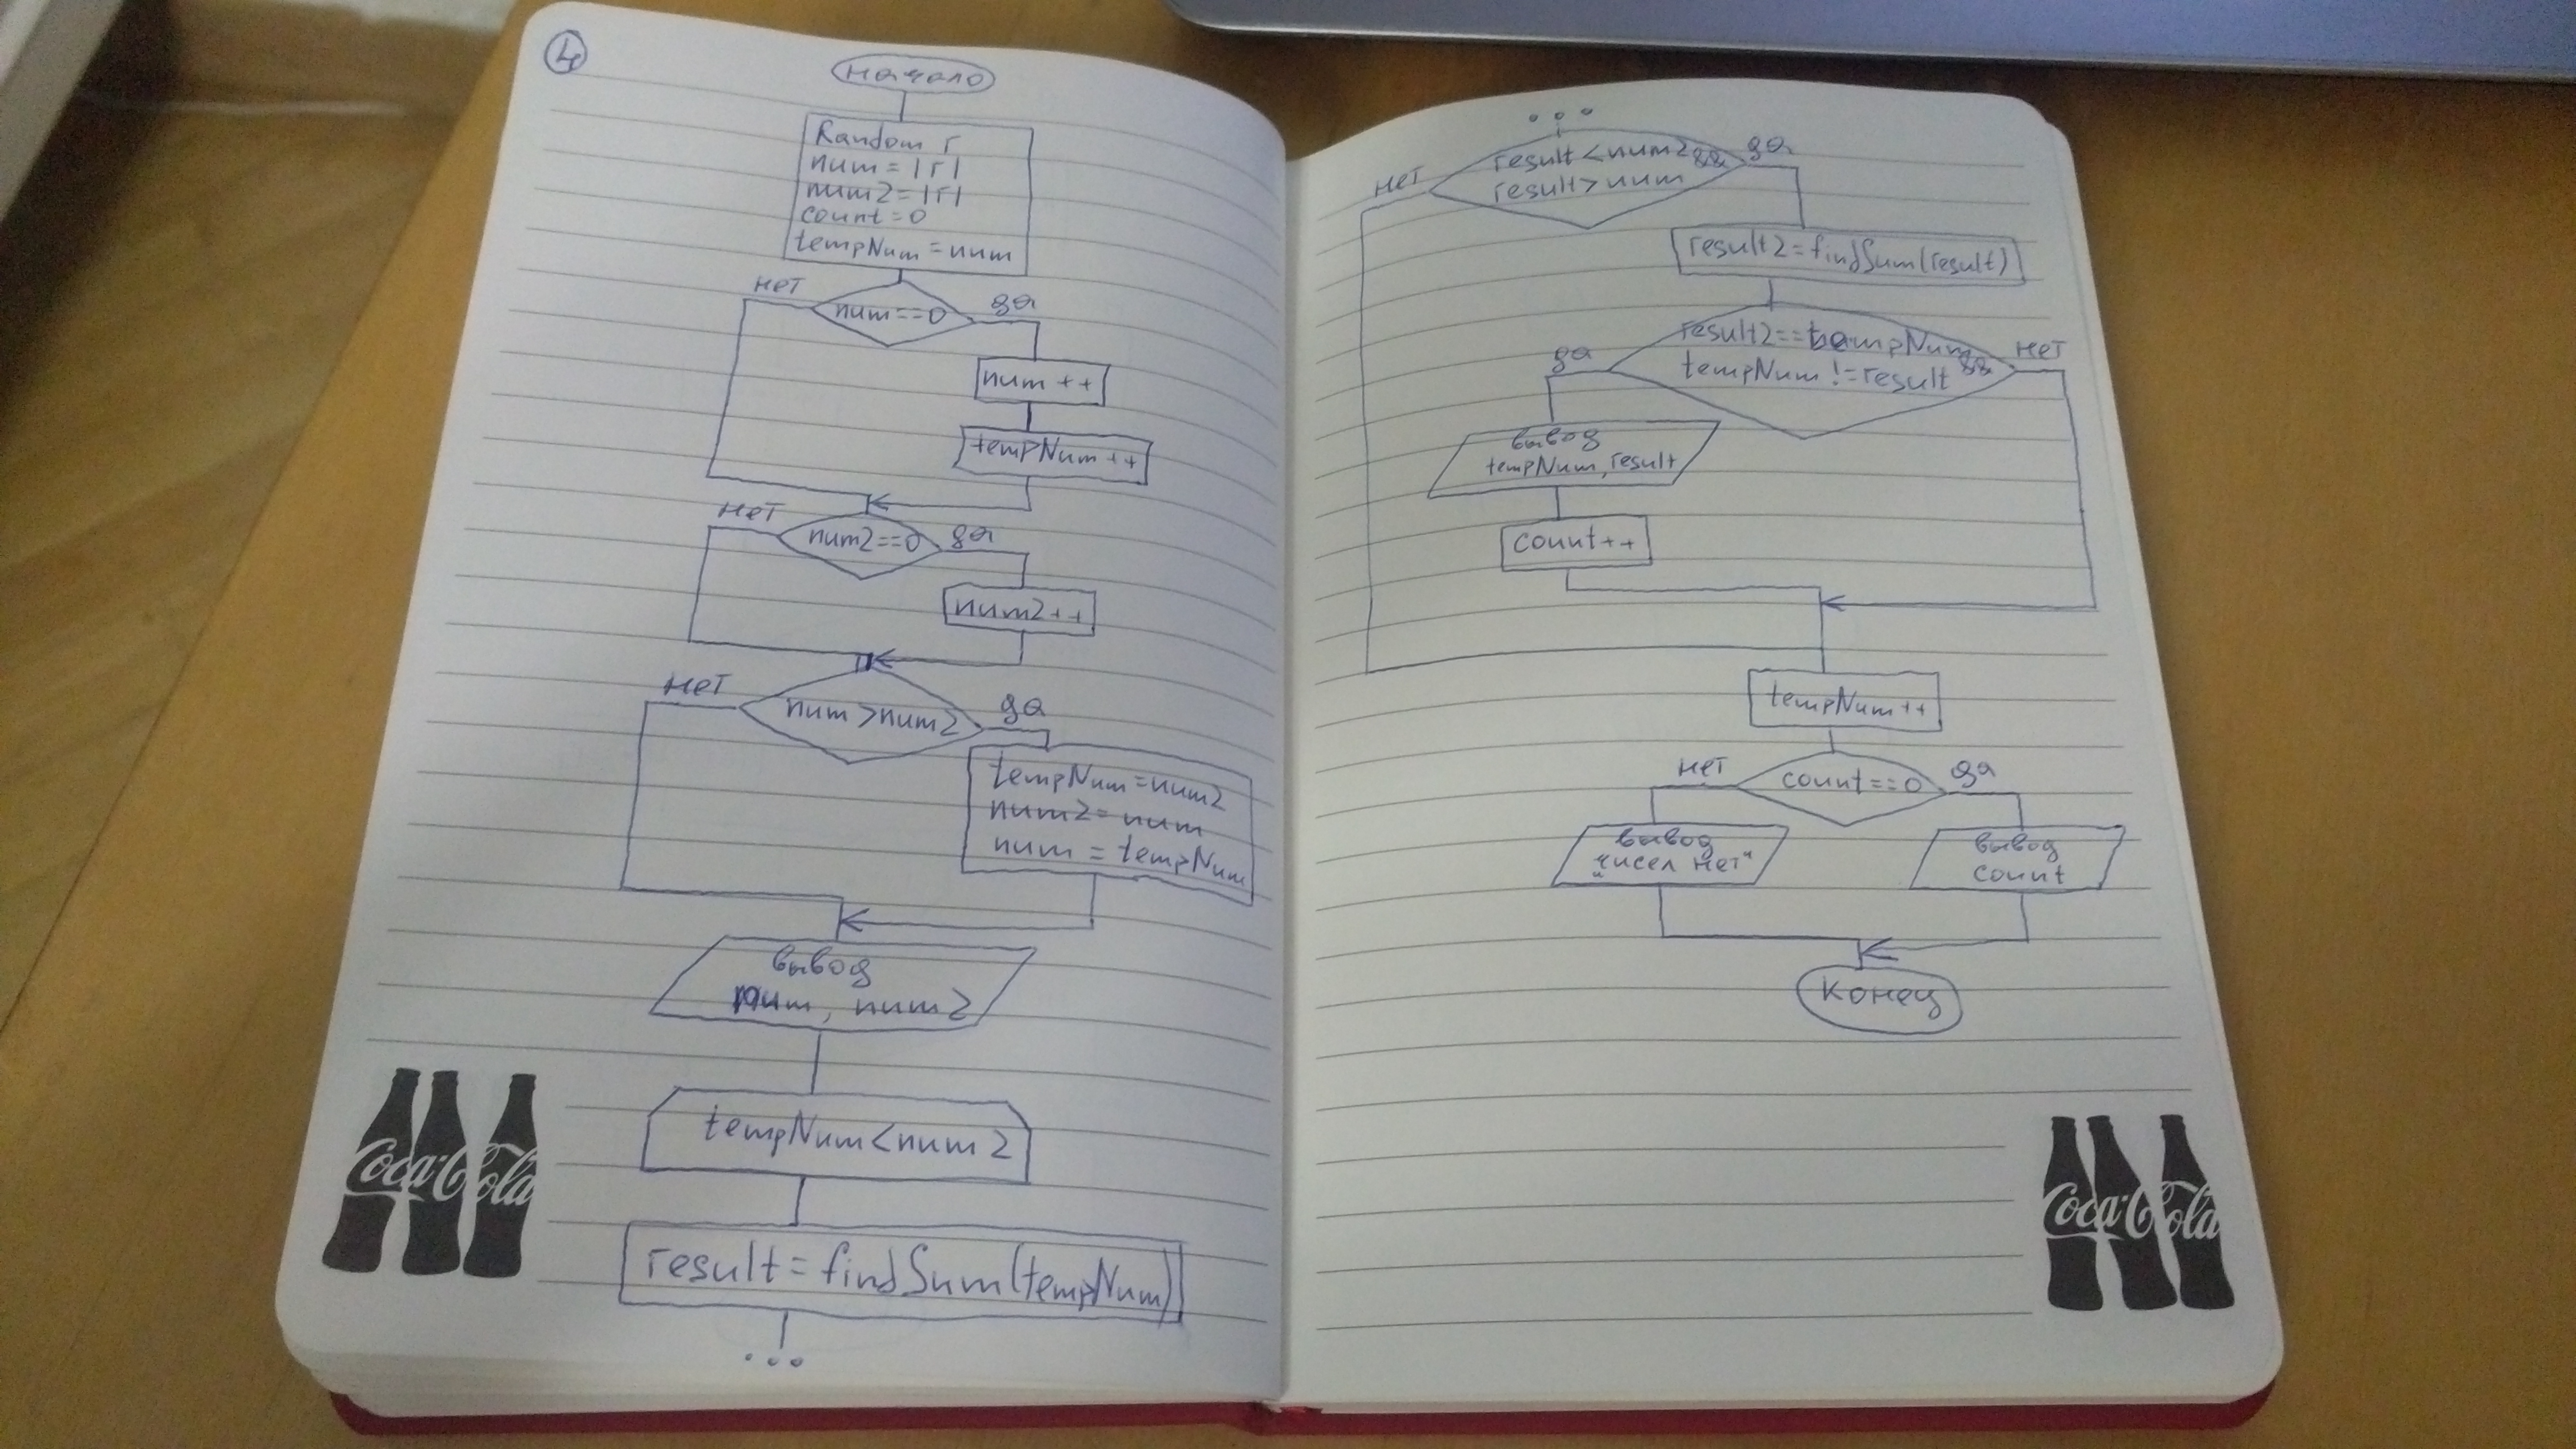 4
начало
Random r
num = |r|
num2 = |r|
count = 0
tempNum = num
нет
num==0
да
num ++
tempNum ++
нет
num2==0
да
num2++
нет
num > num2
да
tempNum = num2
num2 = num
num = tempNum
вывод
num, num2
tempNum < num2
result = findSum(tempNum)
...
Coca-Cola
...
нет
result < num2 &&
result > num
да
result2 = findSum(result)
да
result2 == tempNum &&
tempNum != result
нет
вывод
tempNum, result
count++
tempNum++
нет
count==0
да
вывод
"чисел нет"
вывод
count
конец
Coca-Cola